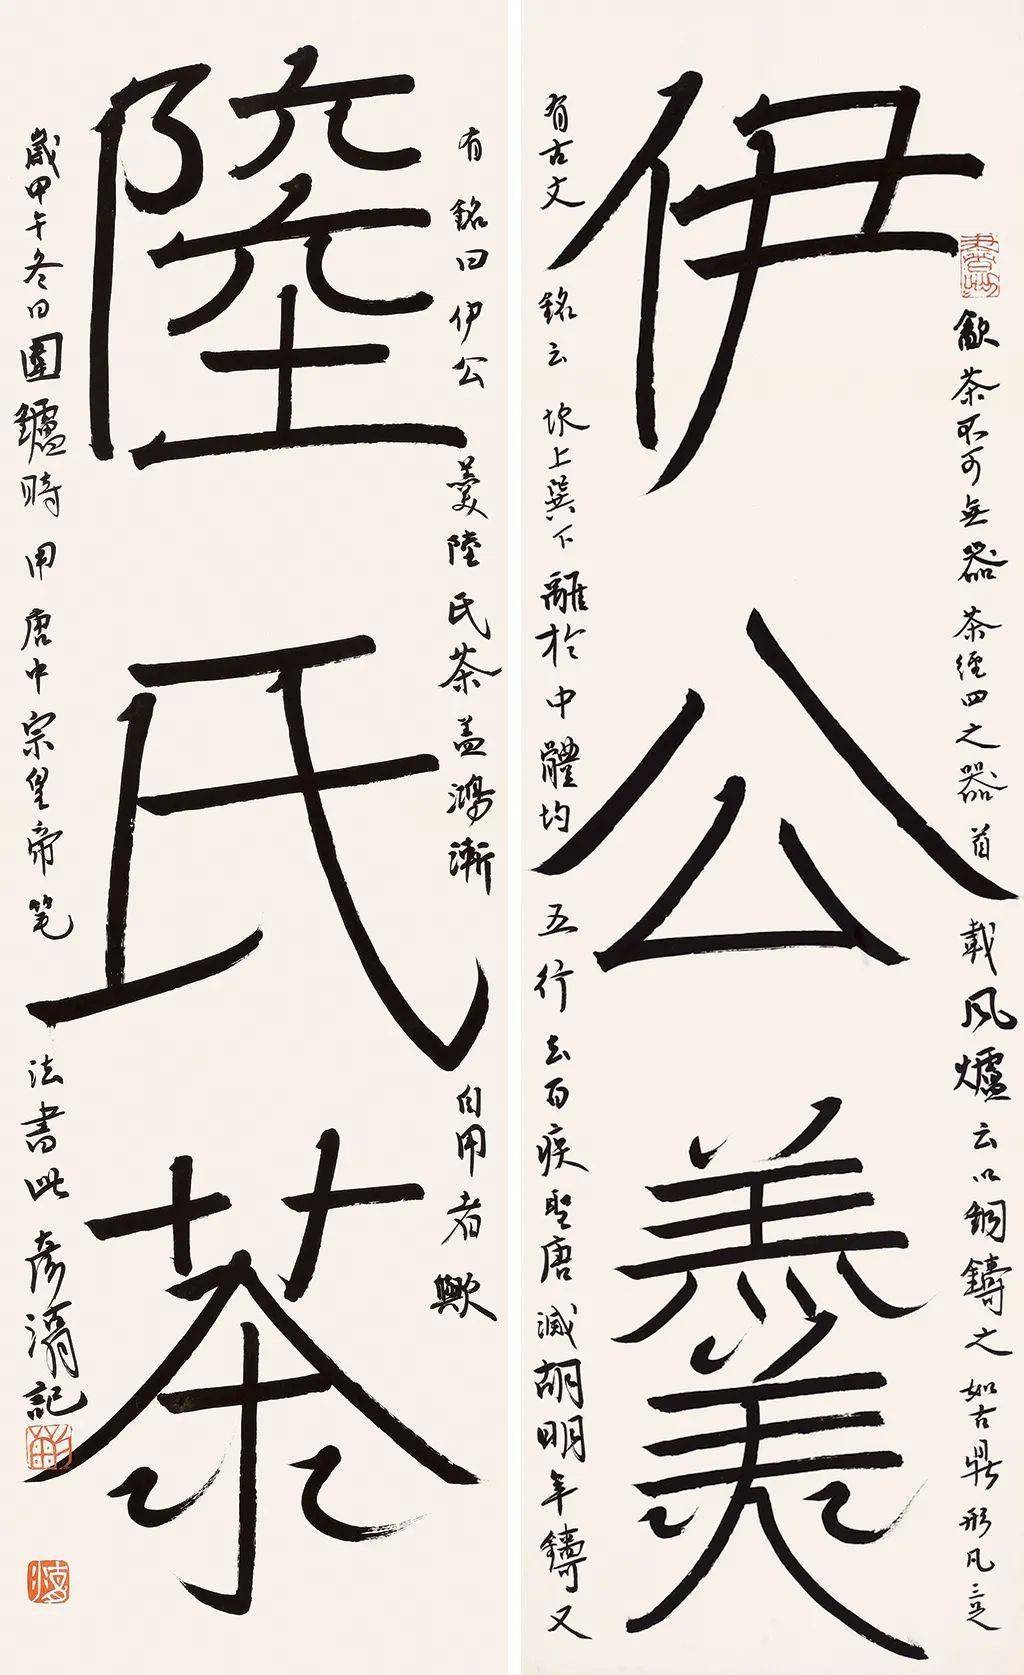 伊公羹
㱃茶不可無器茶經四之器首載風爐云以銅鑄之如古鼎形凡三足
有古文銘云坎上巽下離於中體均五行去百疾聖唐滅胡明年鑄又
陸氏茶
有銘曰伊公羹陸氏茶盖鴻漸自用者歟
歲甲午冬日圍鑪時用唐中宗皇帝笔法書此彦記